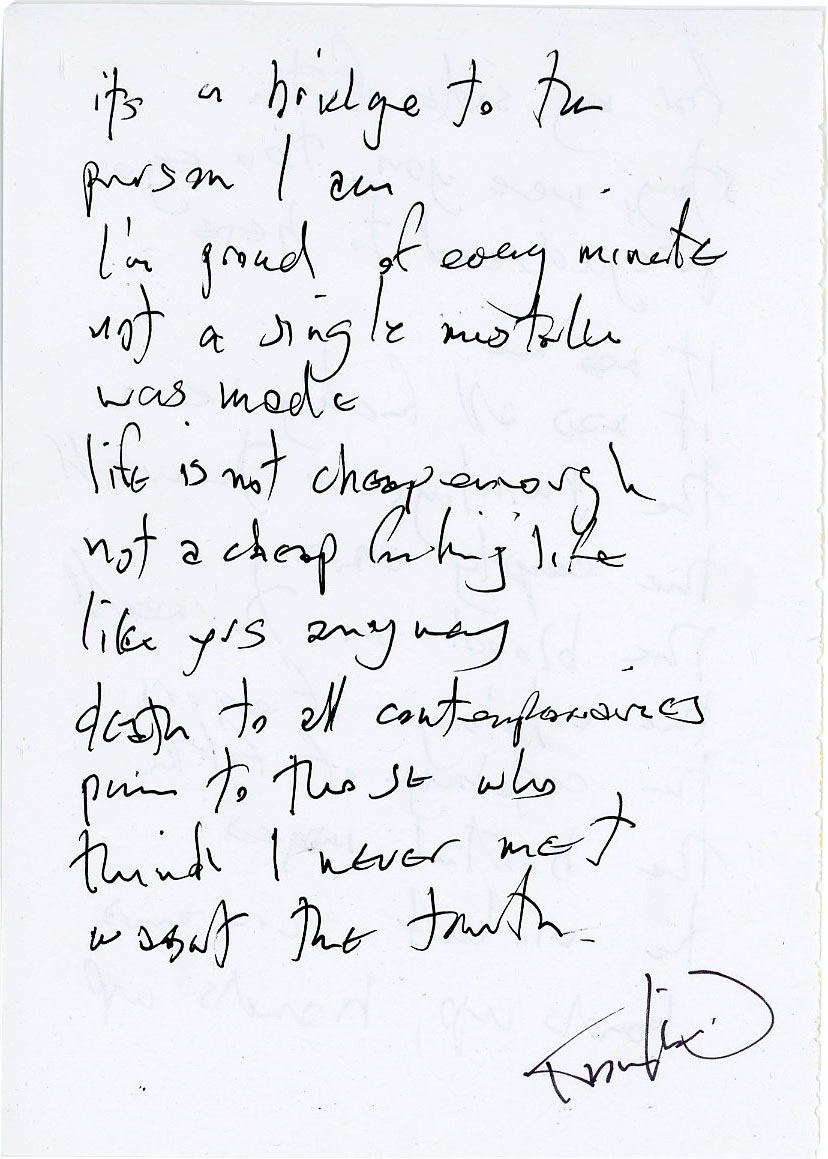 it's a bridge to the
person I am
I'm proud of every minute
not a single mistake
was made
life is not cheap enough
not a cheap fucking life
like yrs anyway
death to all contemporaries
pain to those who
think I never met
wasnt the truth